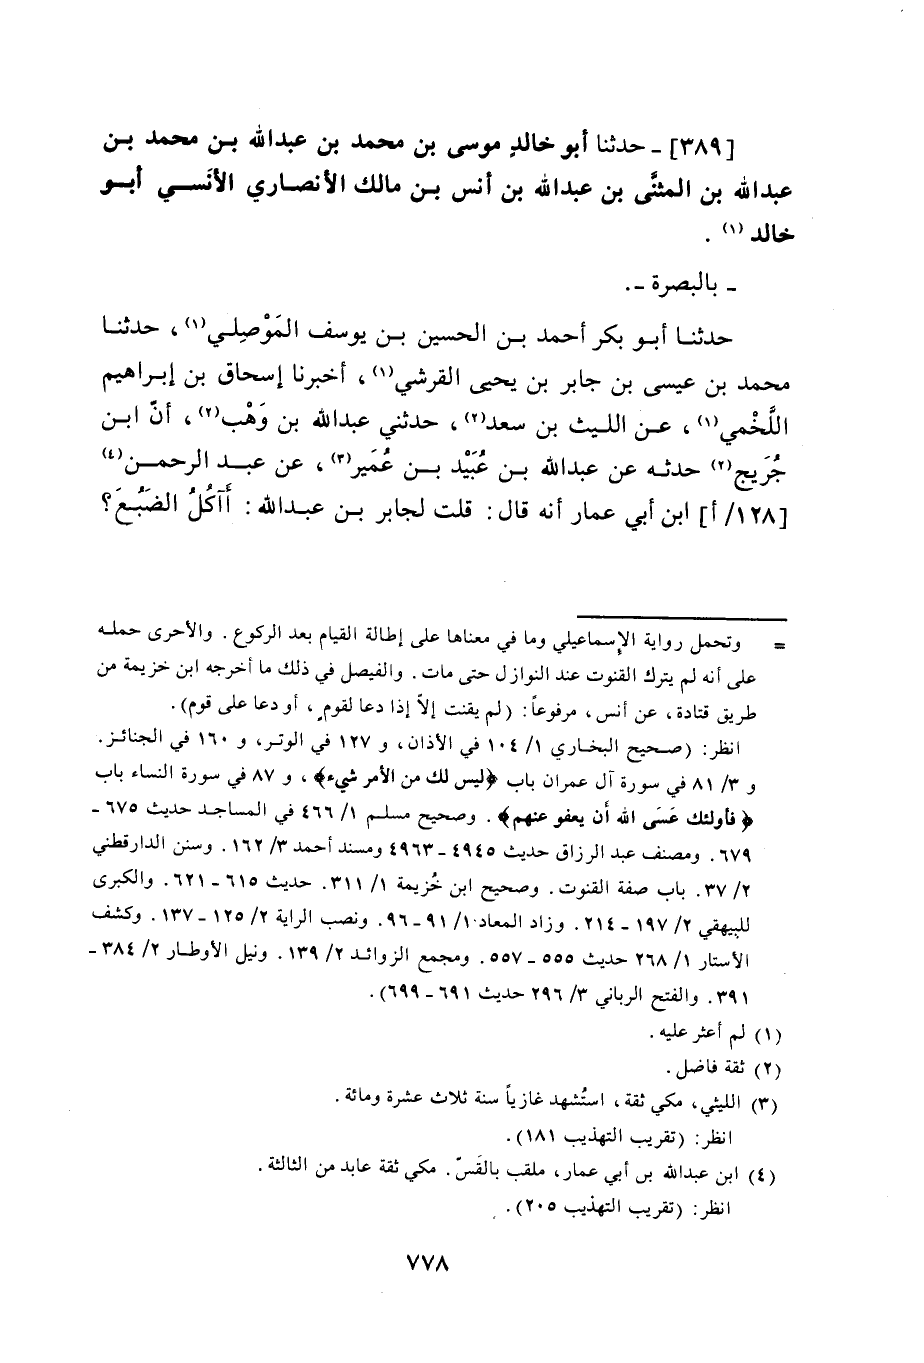 [٣٨٩] ـ حدثنا أبو خالدٍ موسى بن محمد بن عبدالله بن محمد بن
عبدالله بن المثنَّى بن عبدالله بن أنس بن مالك الأنصاري الأنَسي أبو
خالد (١) .
ـ بالبصرة ـ.
حدثنا أبو بكر أحمد بن الحسين بن يوسف المَوْصِلي(١)، حدثنا
محمد بن عيسى بن جابر بن يحيى القرشي(١)، أخبرنا إسحاق بن إبراهيم
اللَّخْمي(١)، عن الليث بن سعد(٢)، حدثني عبدالله بن وَهْب(٢)، أنّ ابن
جُرَيج(٢) حدثه عن عبدالله بن عُبَيْد بن عُمَير(٣)، عن عبد الرحمن(٤)
[١٢٨/ أ] ابن أبي عمار أنه قال: قلت لجابر بن عبدالله: أَآكُلُ الضَبُعَ؟
= وتحمل رواية الإسماعيلي وما في معناها على إطالة القيام بعد الركوع. والأحرى حمله
على أنه لم يترك القنوت عند النوازل حتى مات. والفيصل في ذلك ما أخرجه ابن خزيمة من
طريق قتادة، عن أنس، مرفوعاً: (لم يقنت إلاّ إذا دعا لقومٍ، أو دعا على قوم).
انظر: (صحيح البخاري ١/ ١٠٤ في الأذان، و ١٢٧ في الوتر، و ١٦٠ في الجنائز.
و ٣/ ٨١ في سورة آل عمران باب ﴿ليس لك من الأمر شيء﴾، و ٨٧ في سورة النساء باب
﴿فأولئك عَسَى الله أن يعفو عنهم﴾. وصحيح مسلم ١/ ٤٦٦ في المساجد حديث ٦٧٥ ـ
٦٧٩. ومصنف عبد الرزاق حديث ٤٩٤٥ ـ ٤٩٦٣ ومسند أحمد ٣/ ١٦٢. وسنن الدارقطني
٢/ ٣٧. باب صفة القنوت. وصحيح ابن خُزيمة ١/ ٣١١. حديث ٦١٥ ـ ٦٢١. والكبرى
للبيهقي ٢/ ١٩٧ ـ ٢١٤. وزاد المعاد ١/ ٩١ ـ ٩٦. ونصب الراية ٢/ ١٢٥ ـ ١٣٧. وكشف
الأستار ١/ ٢٦٨ حديث ٥٥٥ ـ ٥٥٧. ومجمع الزوائد ٢/ ١٣٩. ونيل الأوطار ٢/ ٣٨٤ ـ
٣٩١. والفتح الرباني ٣/ ٢٩٦ حديث ٦٩١ ـ ٦٩٩).
(١) لم أعثر عليه.
(٢) ثقة فاضل.
(٣) الليثي، مكي ثقة، استُشهد غازياً سنة ثلاث عشرة ومائة.
انظر: (تقريب التهذيب ١٨١).
(٤) ابن عبدالله بن أبي عمار، ملقب بالقَسّ. مكي ثقة عابد من الثالثة.
انظر: (تقريب التهذيب ٢٠٥).
٧٧٨